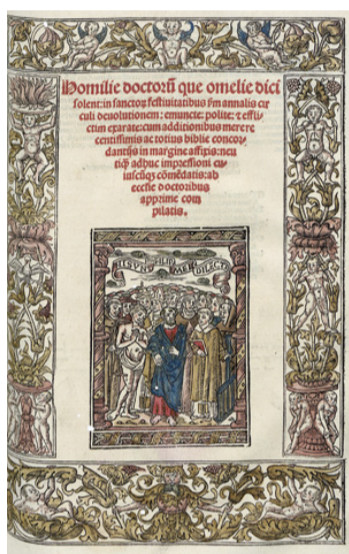 Homilie doctorū que omelie dici
solent: in sanctoꝝ festiuitatibus ẜm annalis cir
culi deuolutionem: emuncte: polite: ⁊ efflic
ctim exarate: cum additionibus merere
centissimis ac totius biblie concor
dantijs in margine affixis: neu
tiꝙ adhuc impressioni cu
iuscūqꝫ cōmēdatis: ab
ecclie doctoribus
apprime com
pilatis.